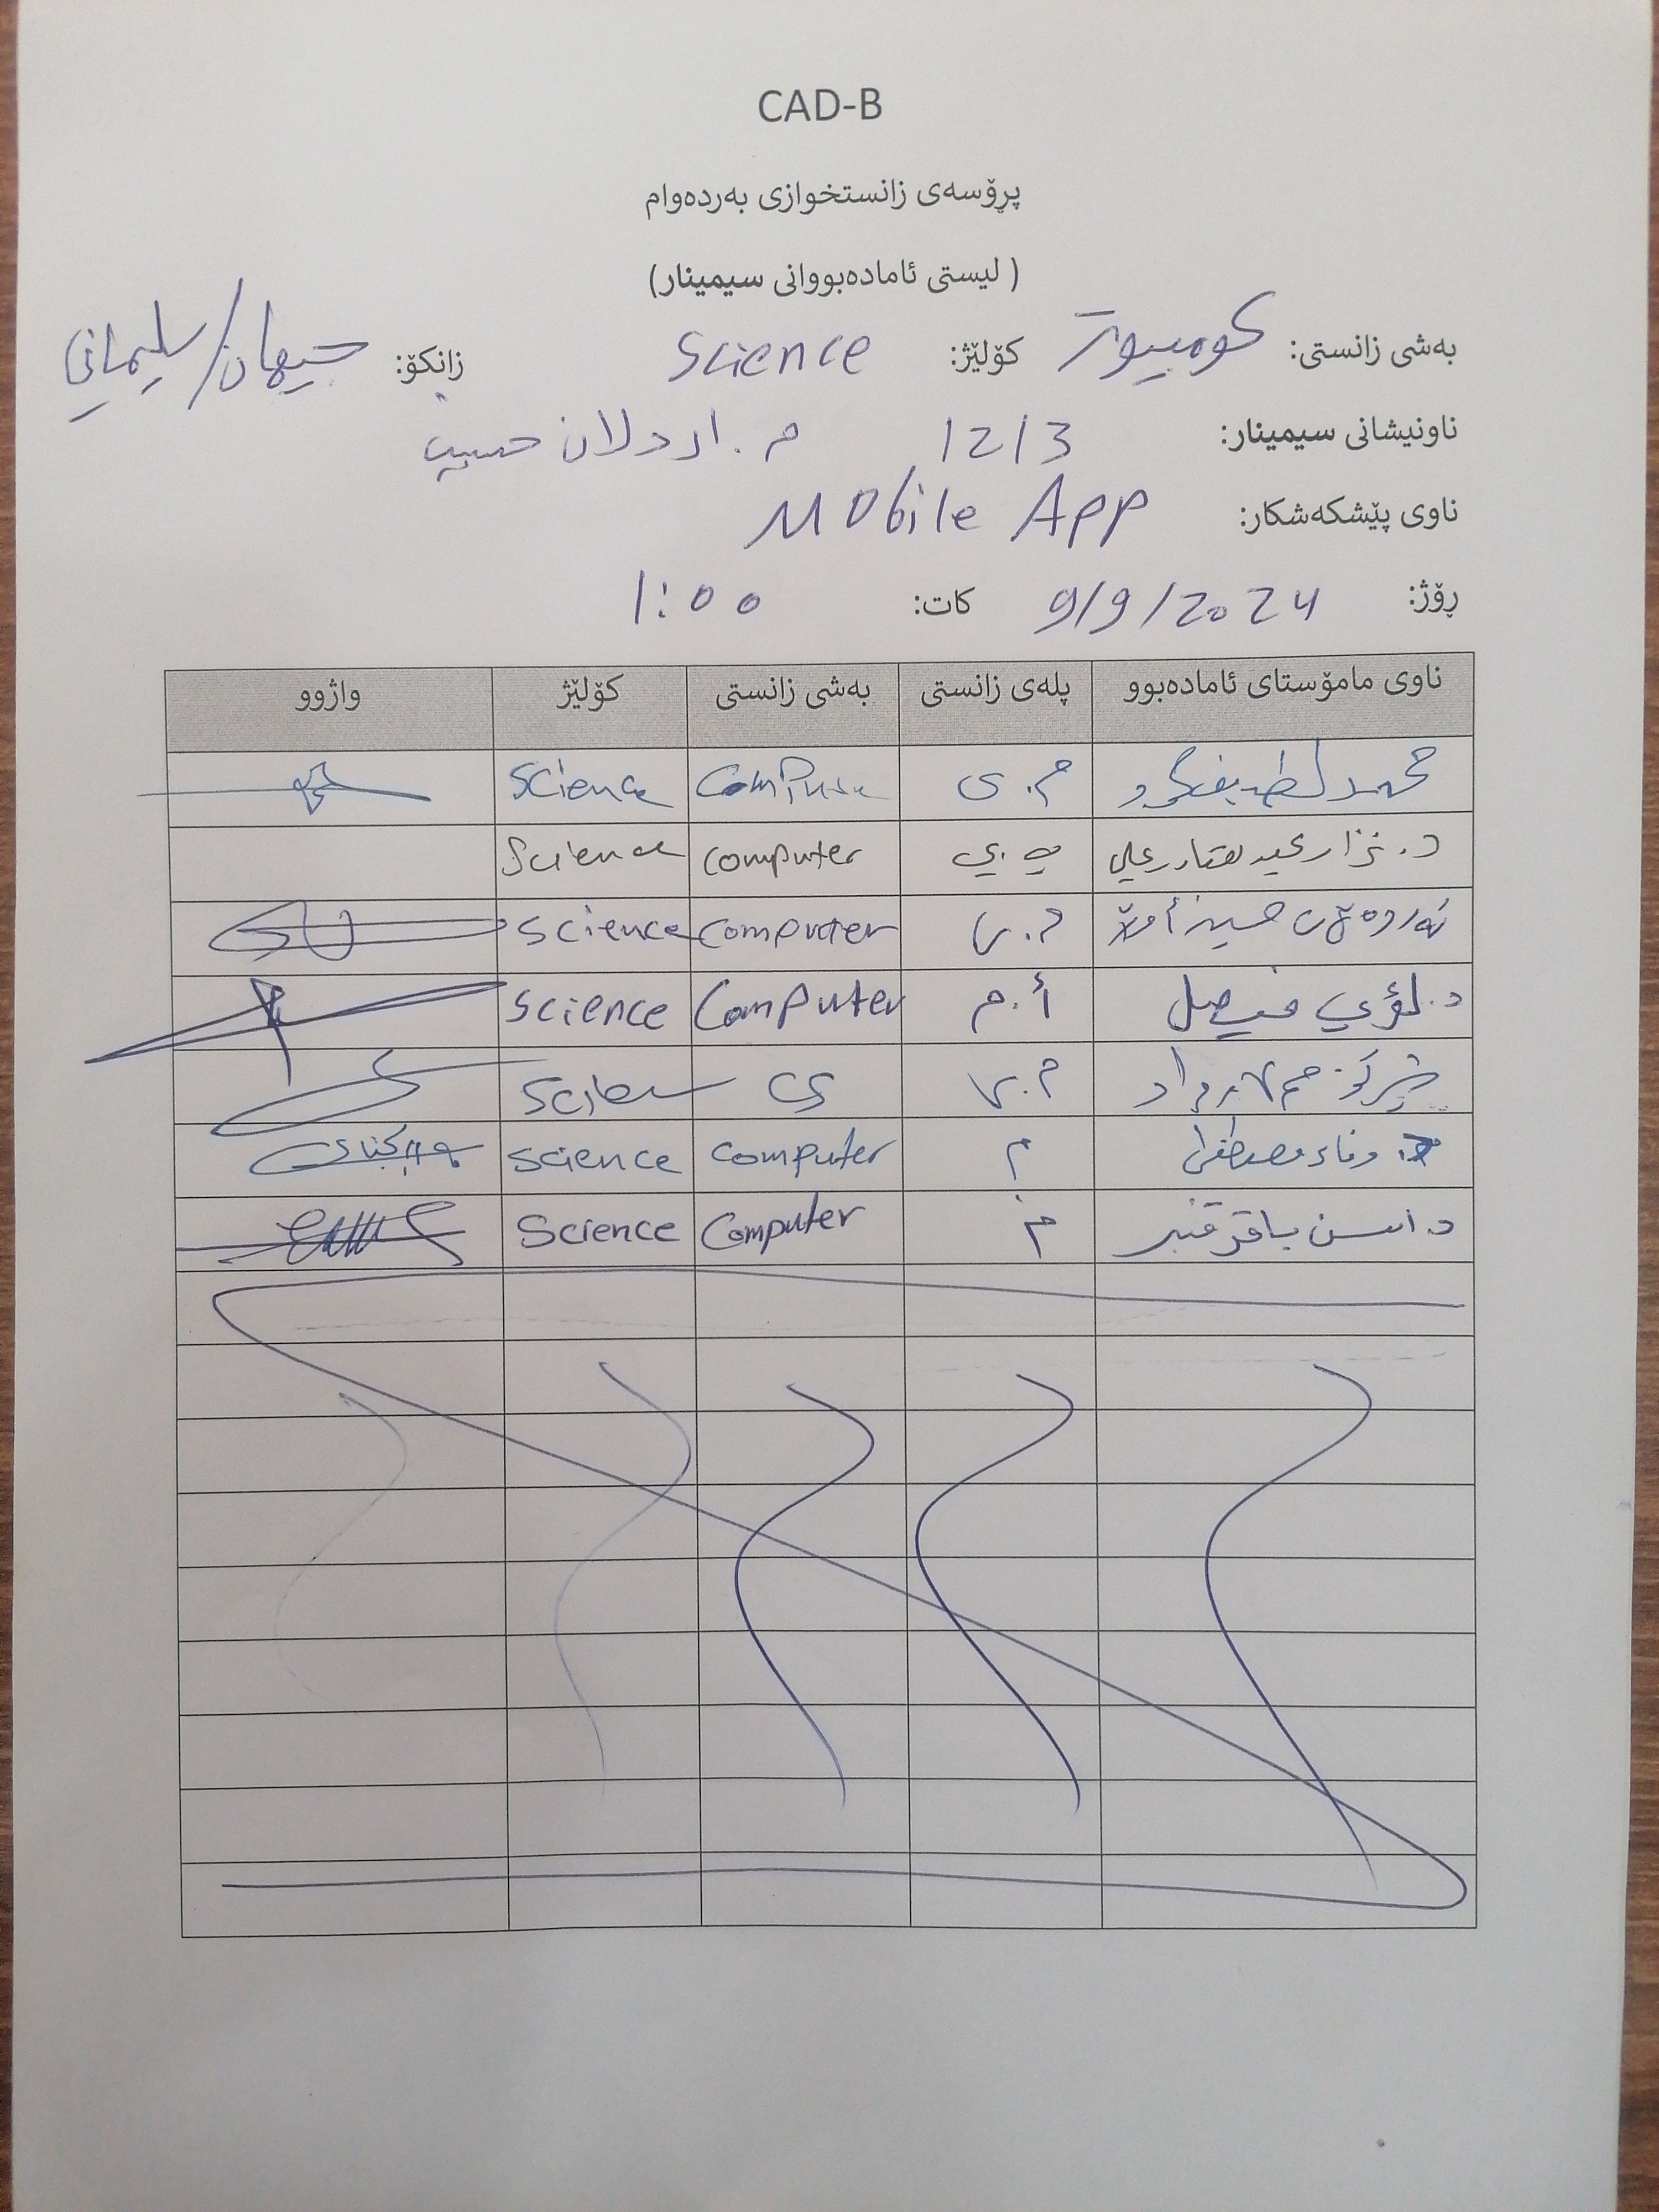 CAD-B
پڕۆسەی زانستخوازی بەردەوام
( لیستی ئامادەبووانی سیمینار)
بەشی زانستی: كومبیوتر كۆلێژ: Science زانكۆ: جيهان/سليماني
ناونیشانی سیمینار: 1213 م. اردلان حسيب
ناوی پێشكەشكار: Mobile App
ڕۆژ: 9/9/2024 كات: 1:00
ناوی مامۆستای ئامادەبوو پلەی زانستی بەشی زانستی كۆلێژ واژوو
محمد لطيف م.ی Computer Science
د. نزار عبدلقادر علي پ.ی Computer Science
حسين أمين Computer Science
د. لؤي فيصل أ.م Computer Science
م.ی CS Science
وفاء مصطفى م Computer Science
د. باقر قنبر م Computer Science